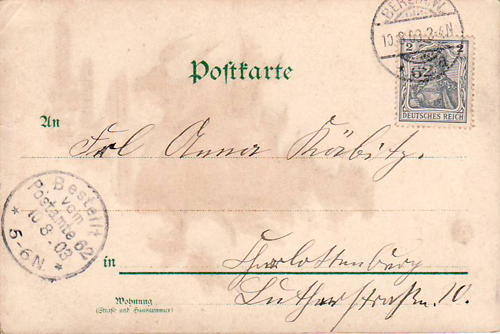 BERLIN.W.
10.8.03.3-4N
62 a
2 2
DEUTSCHES REICH
Postkarte
An
Frl Anna Käbitz.
Bestellt
vom
Postamte 62
10 8.03
5-6N.
in Charlottenburg
Lutherstraße 10.
Wohnung
(Straße und Hausnummer)